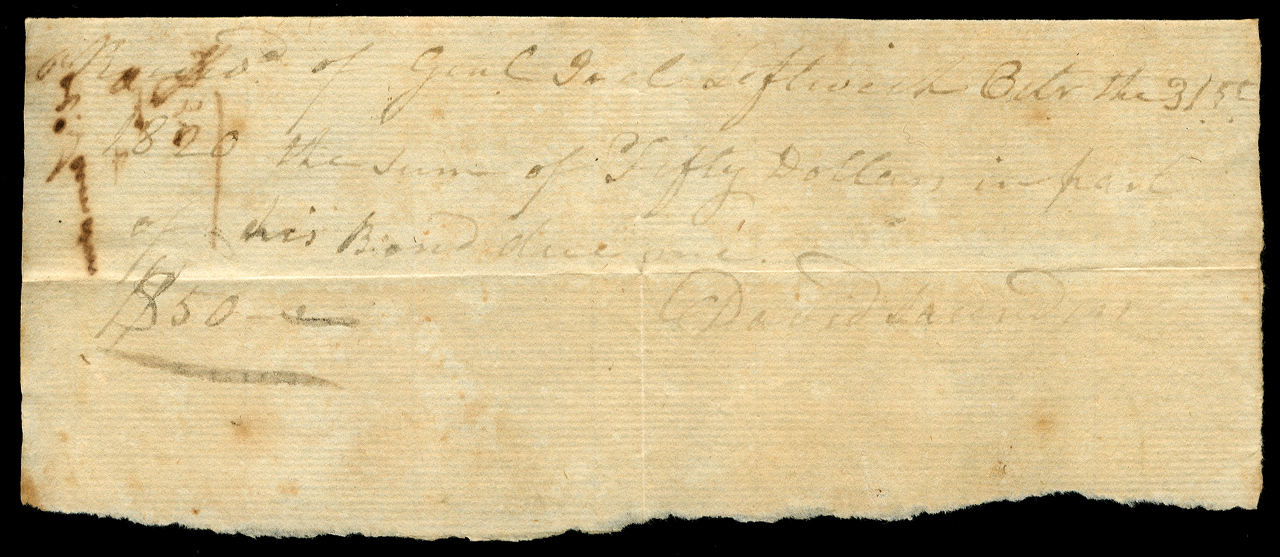 Received of Genl Joel Leftwich Octr the 31st
1820 the sum of Fifty Dollars in part
of his Bond due me.
$50
David Saunders